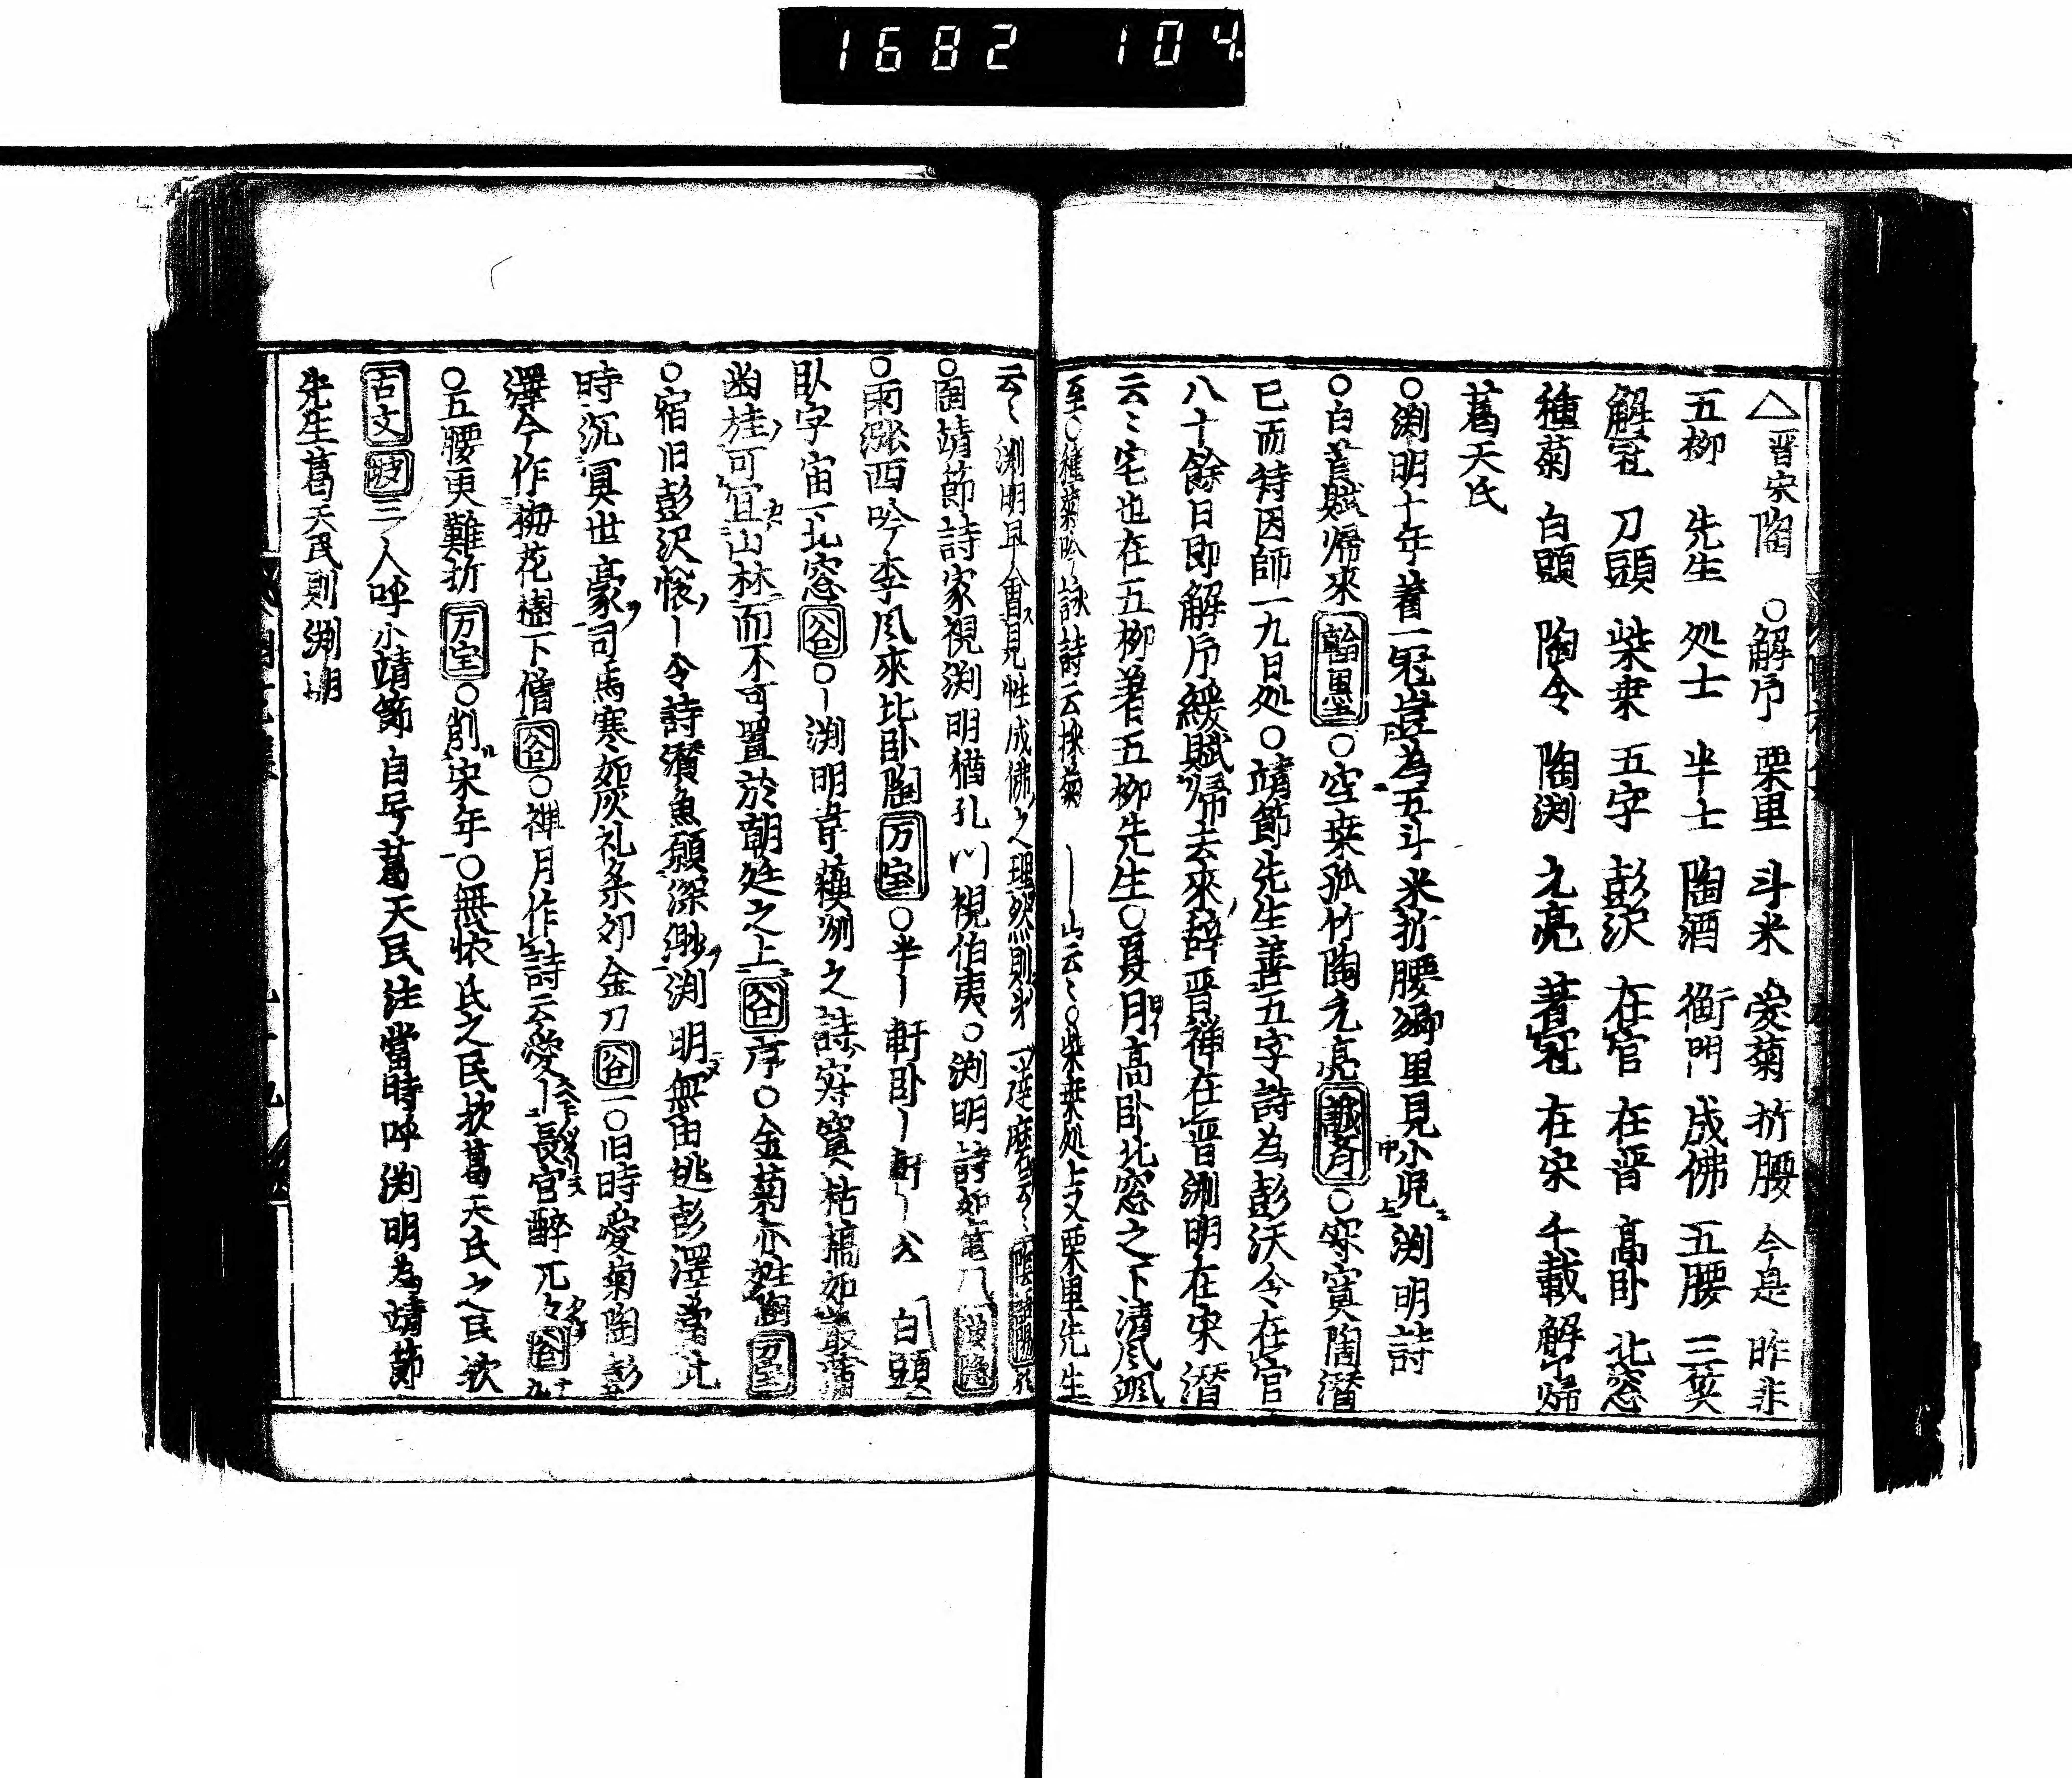 1682 104
△晋宋陶 ○解印 栗里 斗米 愛菊 折腰 今是 昨非
五柳 先生 処士 半士 陶酒 衡門 成佛 五腰 三笑
解冠 刀頭 柴桒 五字 彭沢 在官 在晋 高卧 北窓
種菊 白頭 陶令 陶渕 元亮 著冠 在宋 千載 解印帰
葛天氏
○渕明十年著一冠豈為五斗米折腰郷里見小児渕明詩
○白首賦帰來 翰墨 ○空桒孤竹陶元亮 誠斉 ○寂寞陶潜
已而詩因師一九日処○靖節先生善五字詩為彭沃令在官
八十餘日即解序綬賦帰去來辞晋禅在晋渕明在宋潜
云〻宅也在五柳著五柳先生○夏月高卧北窓之下清風颯
至○種菊吟詠詩云採菊 ー山云〻○柴桒処士又栗里先生
云〻渕明且會見性成佛之理然則第一達磨云〻
○陶靖節詩家視渕明猶孔門視伯夷○渕明詩如
○雨漲西吟李風來北卧陶 万宝 ○半ー軒卧ー軒ー 白頭
卧字宙一北窓 谷 ○ー渕明韋蘇州之詩寂寞枯槁如叢
幽桂可宜山林而不可置於朝廷之上 谷 序○金菊亦姓陶 万宝
○宿旧彭沢懐ー令詩潜魚願深渺渕明無由逃彭澤當此
時沉冥世豪司馬寒如灰礼楽卯金刀 谷一○旧時愛菊陶彭
澤今作栁花樹下僧 谷 ○禅月作詩云愛ー長官醉兀〻 谷九
○五腰更難折 万宝 ○削宋年○無懐氏之民欤葛天氏之民欤
古文 坡三 人呼小靖節自号葛天民注當時呼渕明為靖節
先生葛天民則渕明